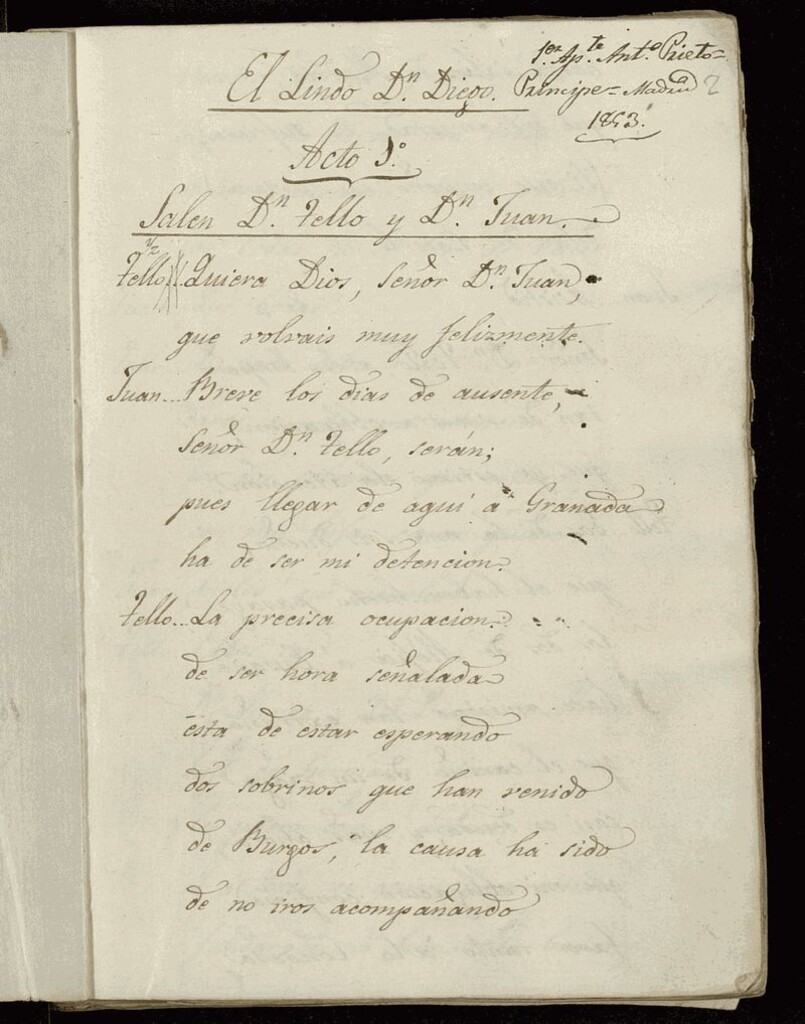 El Lindo Dn. Diego.
1er. Ap.te Ant.o Prieto=
Principe= Madrid 2
1853.
Acto 1º
Salen Dn. Tello y Dn. Juan.
Tello.. Quiera Dios, Señor Dn. Juan,
que volvais muy felizmente.
Juan... Breve los dias de ausente,
Señor Dn. Tello, serán;
pues llegar de aquí á Granada
ha de ser mi detencion.
Tello... La precisa ocupacion
de ser hora señalada
ésta de estar esperando
dos sobrinos que han venido
de Burgos, la causa ha sido
de no iros acompañando